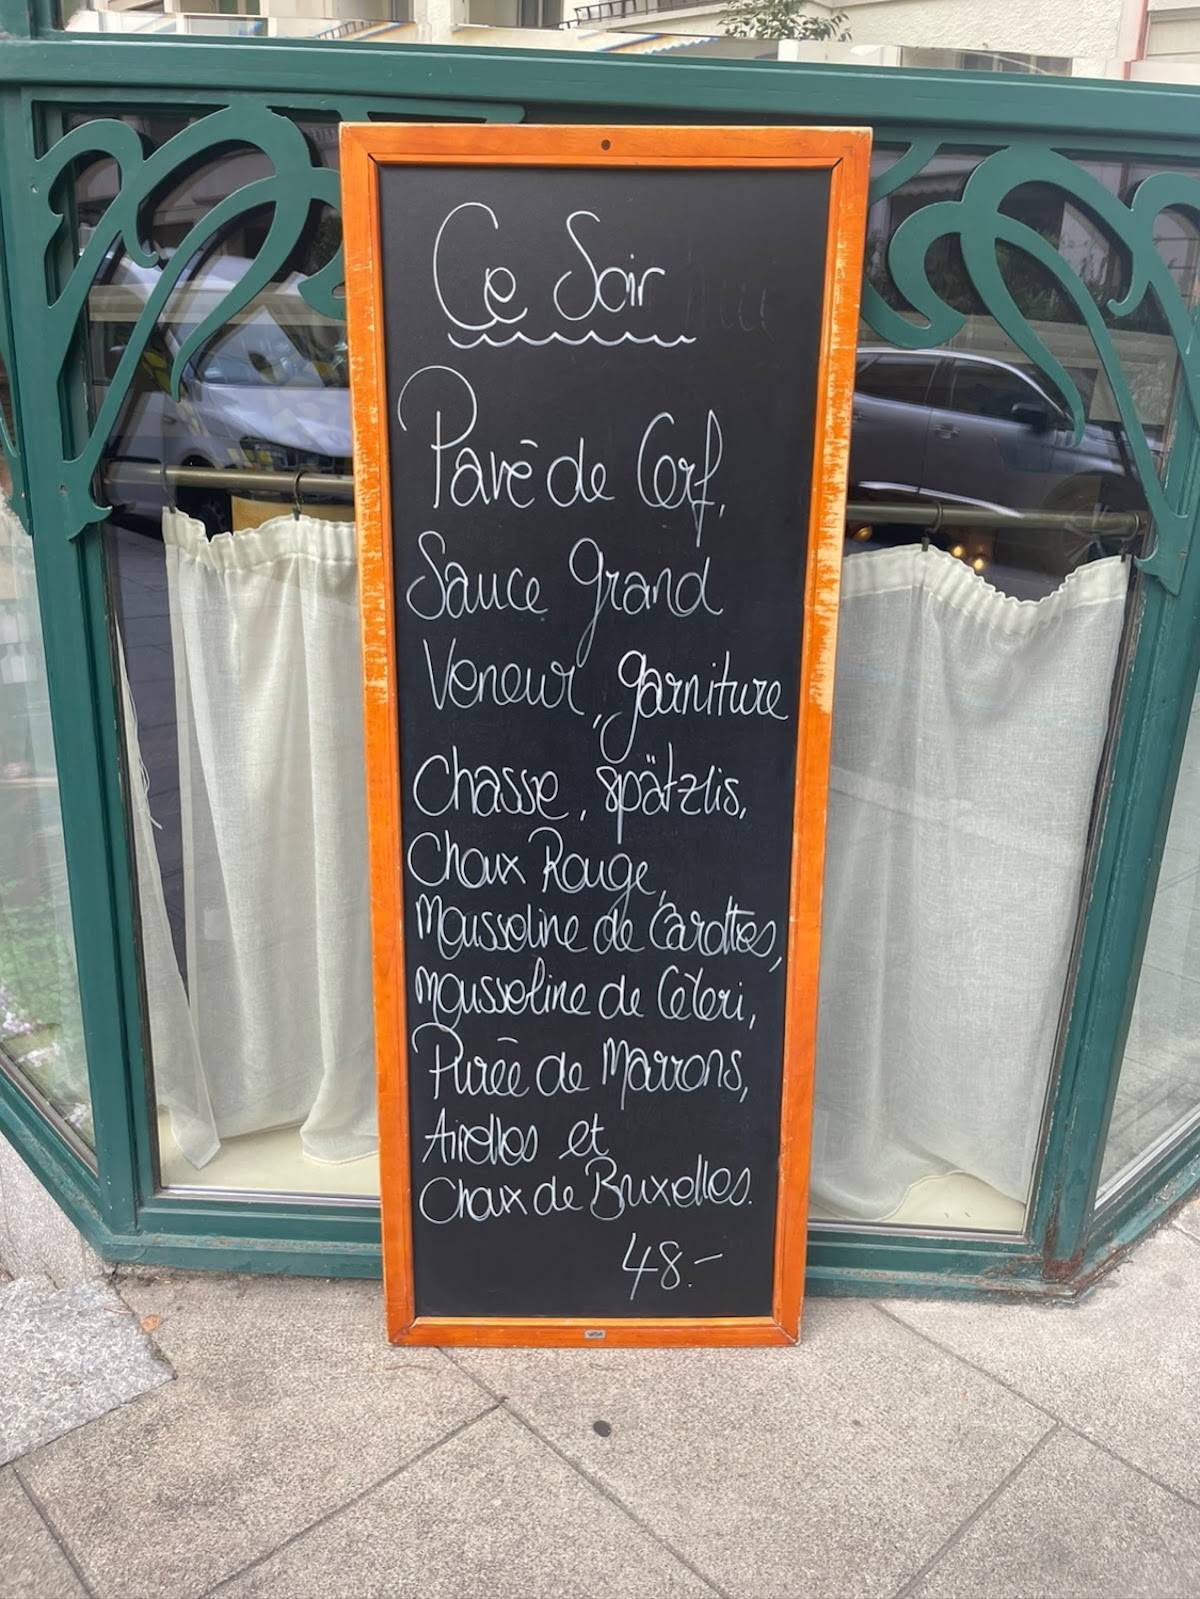 Ce Soir
Pavé de Cerf,
Sauce Grand
Veneur, garniture
Chasse, spätzlis,
Choux Rouge,
Mousseline de Carottes,
Mousseline de Céleri,
Purée de Marrons,
Airelles et
Choux de Bruxelles.
48.-